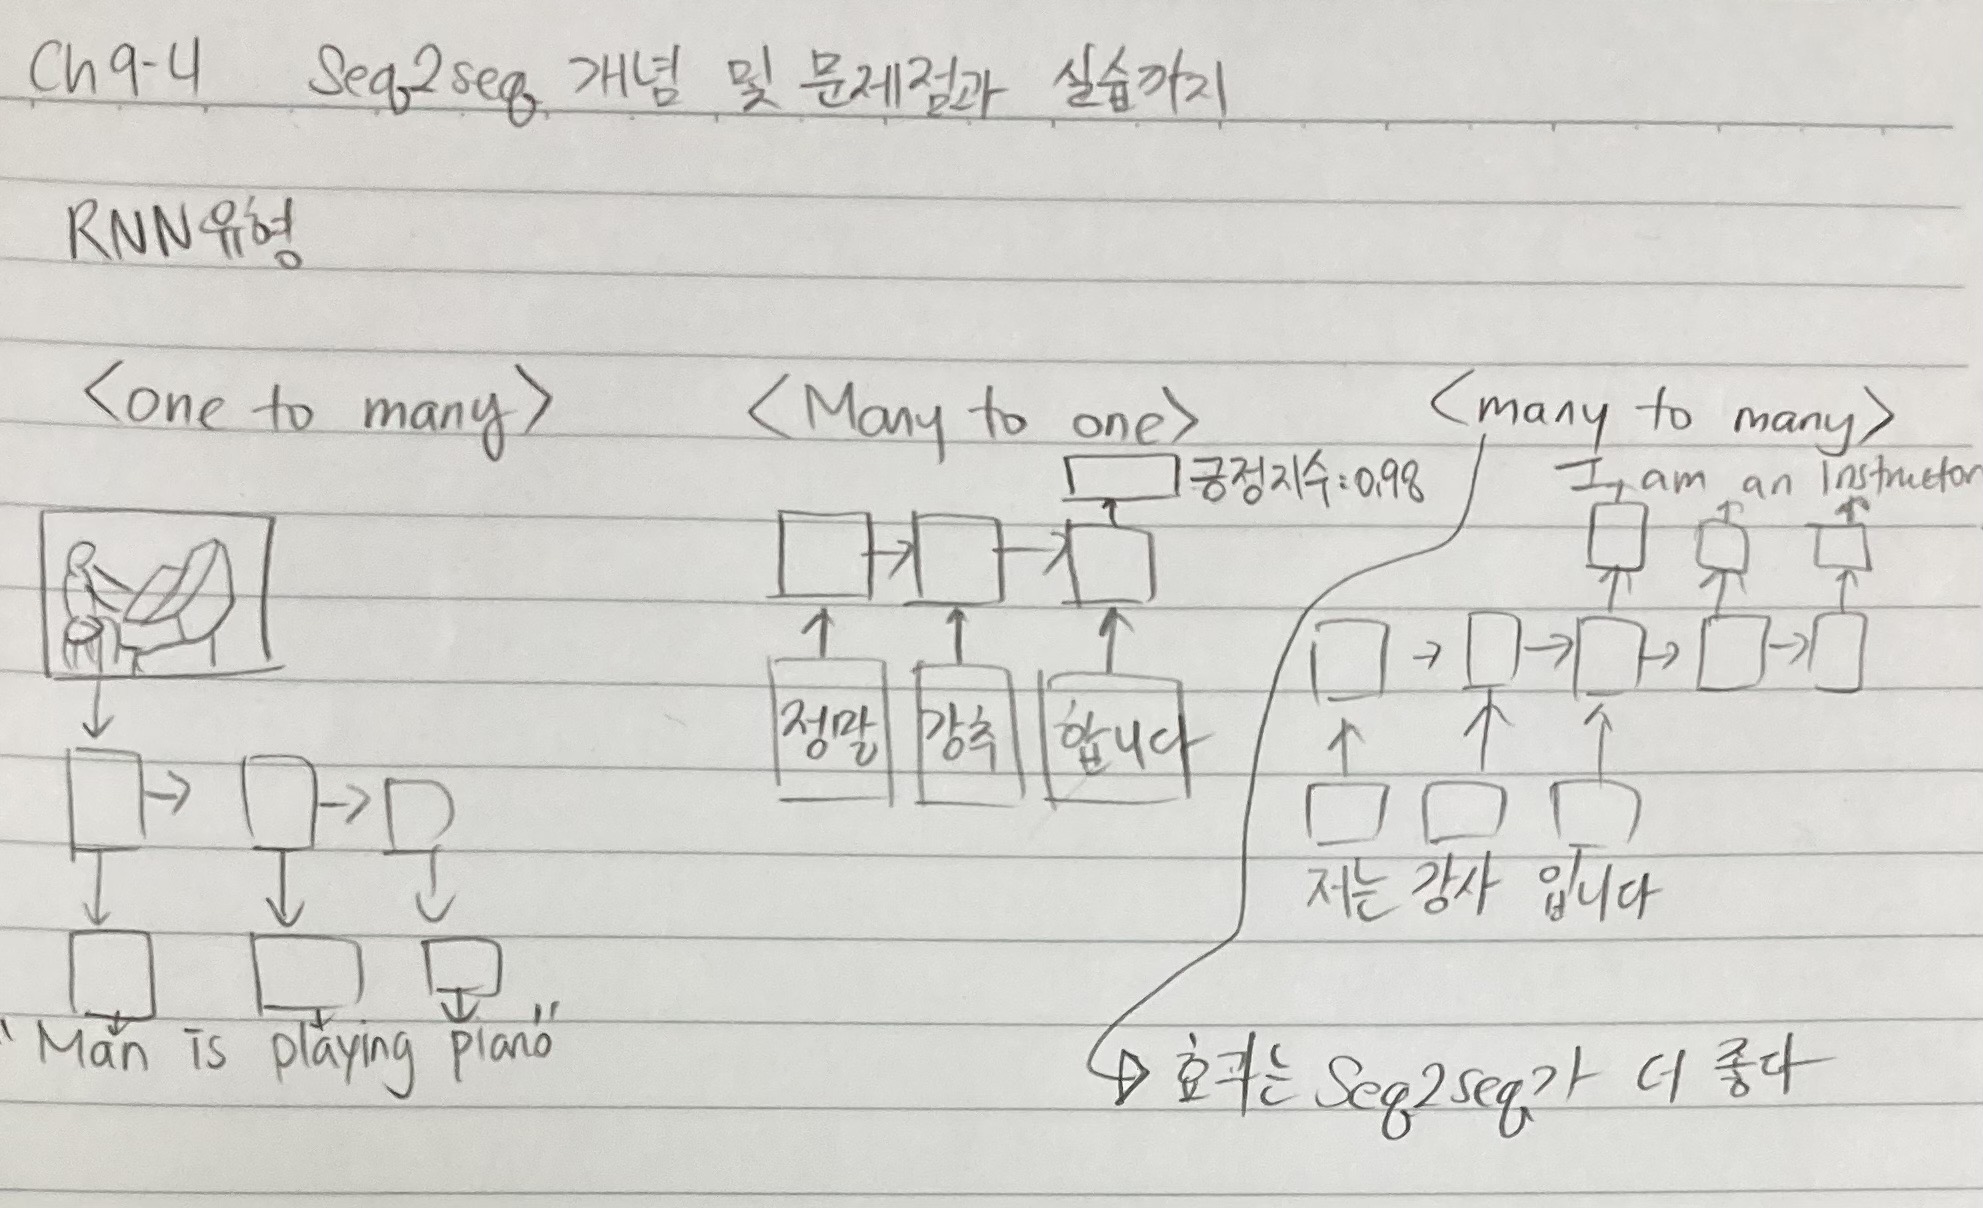 Ch 9-4 Seq2seq 개념 및 문제점과 실습까지
RNN유형
<one to many>
"Man is playing piano"
<Many to one>
긍정지수:0.98
정말 강추 합니다
<many to many>
I am an Instructor
저는 강사 입니다
효과는 Seq2seq가 더 좋다